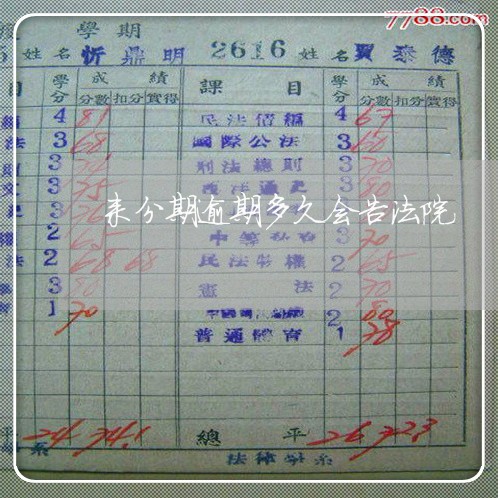 7788.com
學期
姓名 忻鼎明 2616 姓名 賈泰德
目 學分 成績 課目 學分 成績
分數 扣分 實得 分數 扣分 實得
4 81 民法債編 4 67
法 3 68 國際公法 3 60
則 3 刑法總則 3 70
3 75 3 80
3 3
来分期逾期多久会告法院
2 65 3 70
法 2 68 68 民法物權 2 65
3 80 憲法 2 70
1 70 2 80
普通體育 1 78
平 24 74.1 總平 26 72.3
系 法律學系